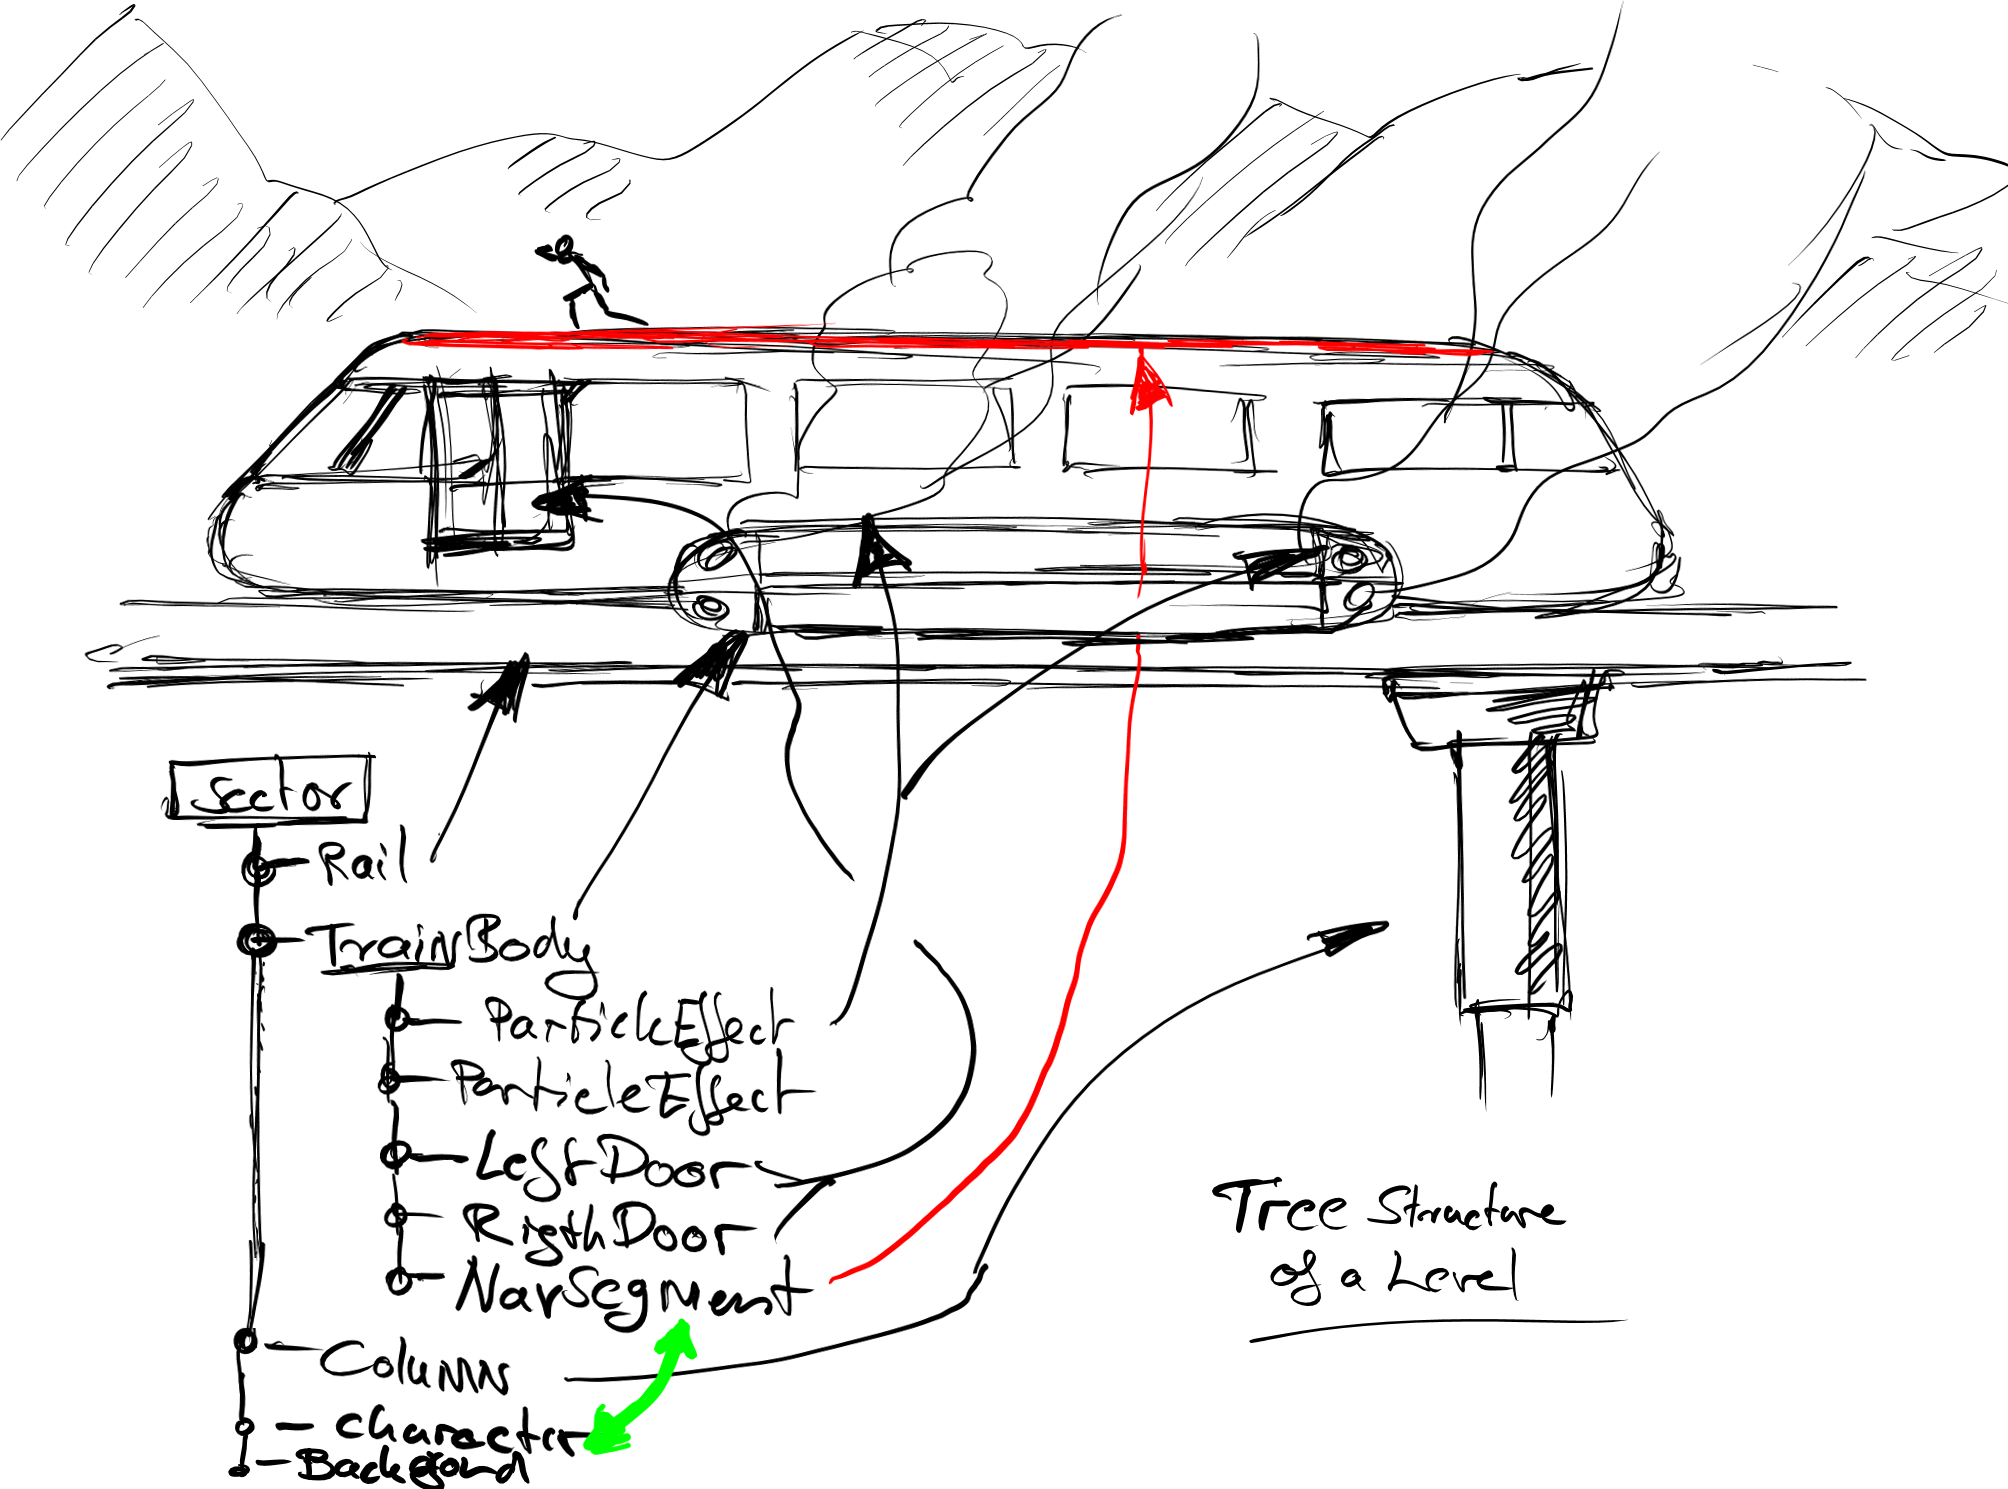 Sector
Rail
TrainBody
ParticleEffect
ParticleEffect
LeftDoor
RigthDoor
NavSegment
Column
Character
Tree Structure
of a Level